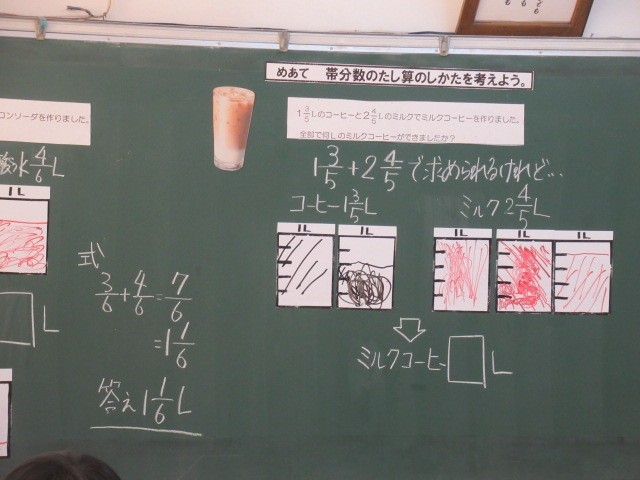 めあて 帯分数のたし算のしかたを考えよう。
コンソーダを作りました。
4/6 L
1L
L
式
3/6+4/6=7/6
=1 1/6
答え 1 1/6 L
1 3/5 Lのコーヒーと2 4/5 Lのミルクでミルクコーヒーを作りました。
全部で何Lのミルクコーヒーができましたか?
1 3/5+2 4/5 で求められるけれど…
コーヒー1 3/5 L
ミルク2 4/5 L
1L 1L 1L 1L 1L
ミルクコーヒー L